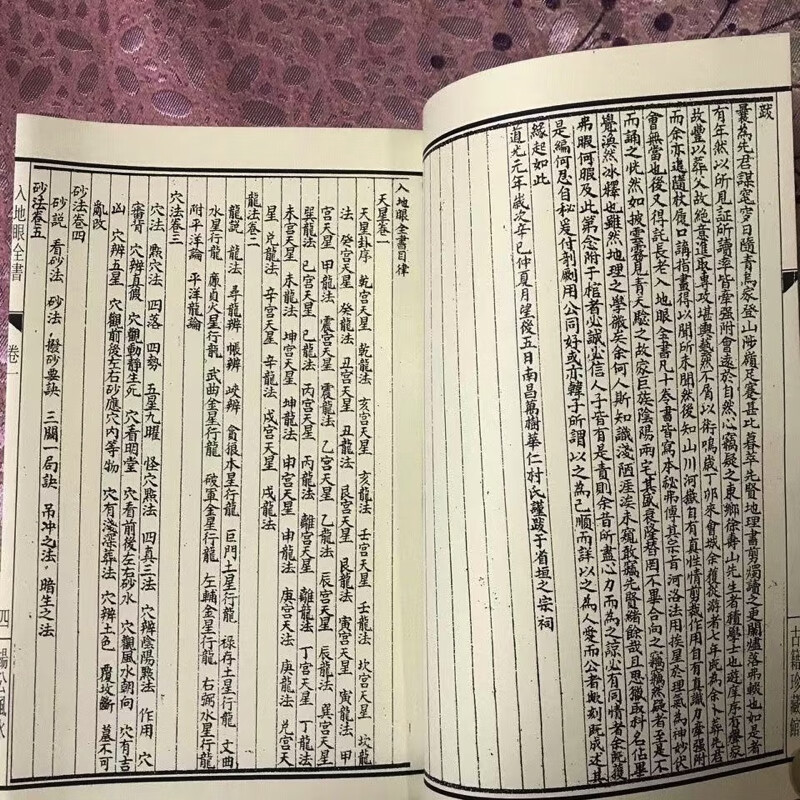 跋
曩為先君謀窀穸日隨青烏家登山陟嶺足蹇甚比暮萃先賢地理書剪燭讀之更闌爐落弗輟也如是者
有年然以所見証所讀率皆牽強附會遠於自然心竊疑之東鄉徐壽山先生者積學士也遊庠序有聲家
故豐以葬父故絕意進取專攻堪輿藝然不屑以術鳴歲丁卯來會城余獲從游者七年既為余卜葬先君
而余亦追隨杖履口講指畫得以聞所未聞然後知山川河嶽自有真性情剪裁作用自有真識力牽強附
會無當也後又得託長老入地眼全書凡十叁書皆寫本秘弗傳其宗旨河洛法用挨星於理氣為神妙伏
而誦之恍然如披雲霧見青天驗之故家巨族陰陽兩宅其盛衰隆替罔不畢合向之竊竊然疑者至是不
覺渙然冰釋也雖然地理之學微矣余何人斯知識淺陋涯涘未窺敢竊先賢緒餘哉且思獵取科名佔畢
弗暇何暇及此第念附于棺者必誠必信人子皆有是責則余昔所盡心力而為之諒必有同情者余既獲
是編何忍自秘爰付剞劂用公同好或亦韓子所謂以之為己順而詳以之為人愛而公者歟刻既成述其
緣起如此
道光元年歲次辛巳仲夏月望後五日南昌萬樹華仁村氏謹跋于省垣之宗祠
古籍珍藏館
入地眼全書目律
天星卷一
天星卦序 乾宫天星 乾龍法 亥宫天星 亥龍法 壬宫天星 壬龍法 坎宫天星 坎龍
法 癸宫天星 癸龍法 丑宫天星 丑龍法 艮宫天星 艮龍法 寅宫天星 寅龍法 甲
宫天星 甲龍法 震宫天星 震龍法 乙宫天星 乙龍法 辰宫天星 辰龍法 巽宫天星
巽龍法 巳宫天星 巳龍法 丙宫天星 丙龍法 離宫天星 離龍法 丁宫天星 丁龍法
未宫天星 未龍法 坤宫天星 坤龍法 申宫天星 申龍法 庚宫天星 庚龍法 兑宫天
星 兑龍法 辛宫天星 辛龍法 戌宫天星 戌龍法
龍法卷二
龍說 龍法 尋龍辨 帳辨 峽辨 貪狼木星行龍 巨門土星行龍 祿存土星行龍 文曲
水星行龍 廉貞火星行龍 武曲金星行龍 破軍金星行龍 左輔金星行龍 右弼水星行龍
附平洋論 平洋龍論
穴法卷三
穴法 㸃穴法 四落 四勢 五星九曜 怪穴㸃法 四真三法 穴辨陰陽㸃法 作用 穴
審脊 穴辨真假 穴觀動靜生死 穴看明堂 穴看前後左右砂水 穴觀風水朝向 穴有吉
凶 穴辨五星 穴觀前後左右砂應穴內等物 穴有淺深葬法 穴辨土色 覆坟斷 墓不可
亂改
砂法卷四
砂說 看砂法 砂法 撥砂要訣 三關一局訣 吊冲之法 暗生之法
砂法卷五
入地眼全書
卷一
四
楊公風水